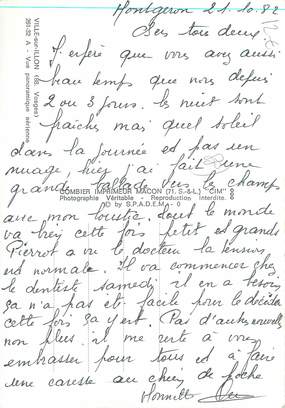 Montgeron 21.10.82
VILLE-sur-ILLON (88. Vosges)
381-82 A - Vue panoramique aérienne
J'espère que vous avez aussi
beau temps que nous depuis
2 ou 3 jours. les nuits sont
fraîches mais quel soleil
dans la journée est pas un
nuage, hier j'ai fait une
grande ballade vers le champs
COMBIER IMPRIMEUR MACON (71. S.-&-L.) "CIM"
Photographie Véritable - Reproduction Interdite.
© by S.P.A.D.E.M.
avec mon loustic. tout le monde
va bien cette fois petit et grands
Pierrot a vu le docteur la tension
est normale. Il va commencer chez
le dentiste samedi il en a besoin
ça n'a pas été facile pour le décider
cette fois ça y est. Pas d'autres nouvelles
non plus il me reste à vous
embrasser pour tous et à faire
une caresse au chien de poche